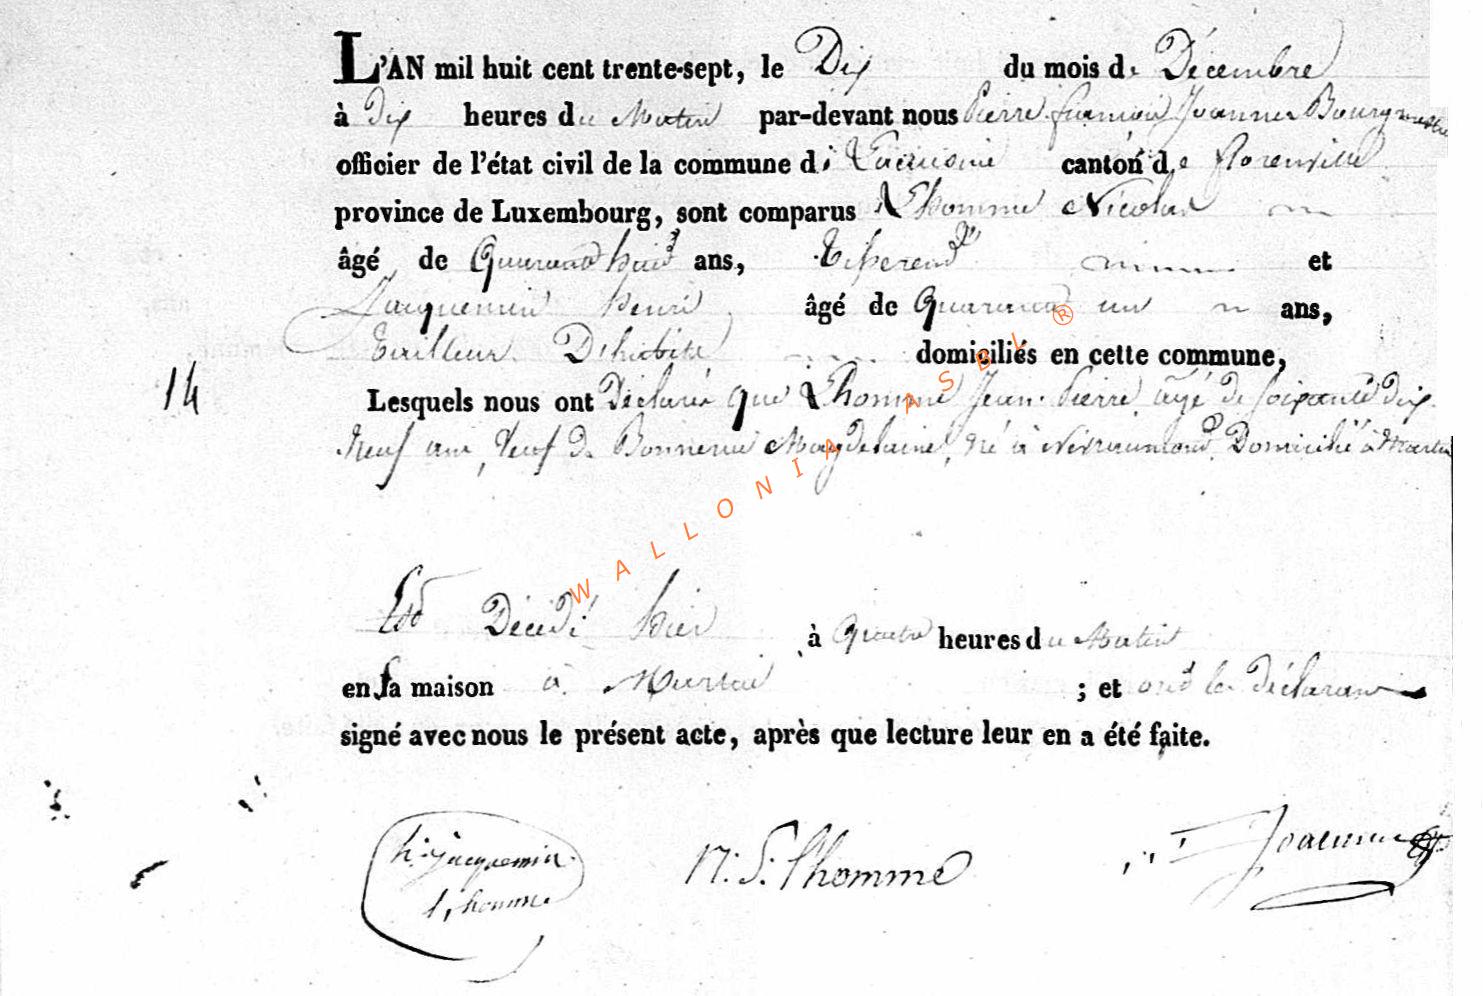 L'AN mil huit cent trente-sept, le Dix du mois de Décembre
à Dix heures du Matin par-devant nous Pierre Joannes Bourgmestre
officier de l'état civil de la commune de canton de florenville
province de Luxembourg, sont comparus Lhomme Nicolas
âgé de Quarante huit ans, Tisserend et
Jacquemin henri âgé de Quarante un ans,
Tailleur D'habits domiciliés en cette commune,
14
Lesquels nous ont Déclaré que Lhomme Jean Pierre âgé de soixante dix
Neuf ans, Veuf de Magdelaine, né à Domicilié à
Est Décédé hier à Quatre heures du Matin
en sa maison à ; et ont les déclarans
signé avec nous le présent acte, après que lecture leur en a été faite.
h. jacquemin N. J. lhomme Joannes
l,homme
WALLONIA ASBL ®